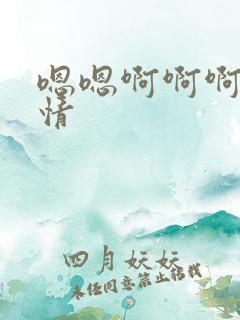 嗯嗯啊啊啊
情
四月妖妖
未经同意禁止转载